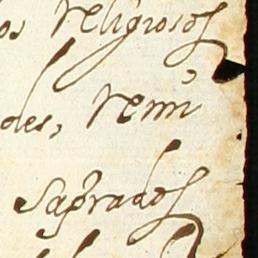 os religiosos
des, remi
sagrados